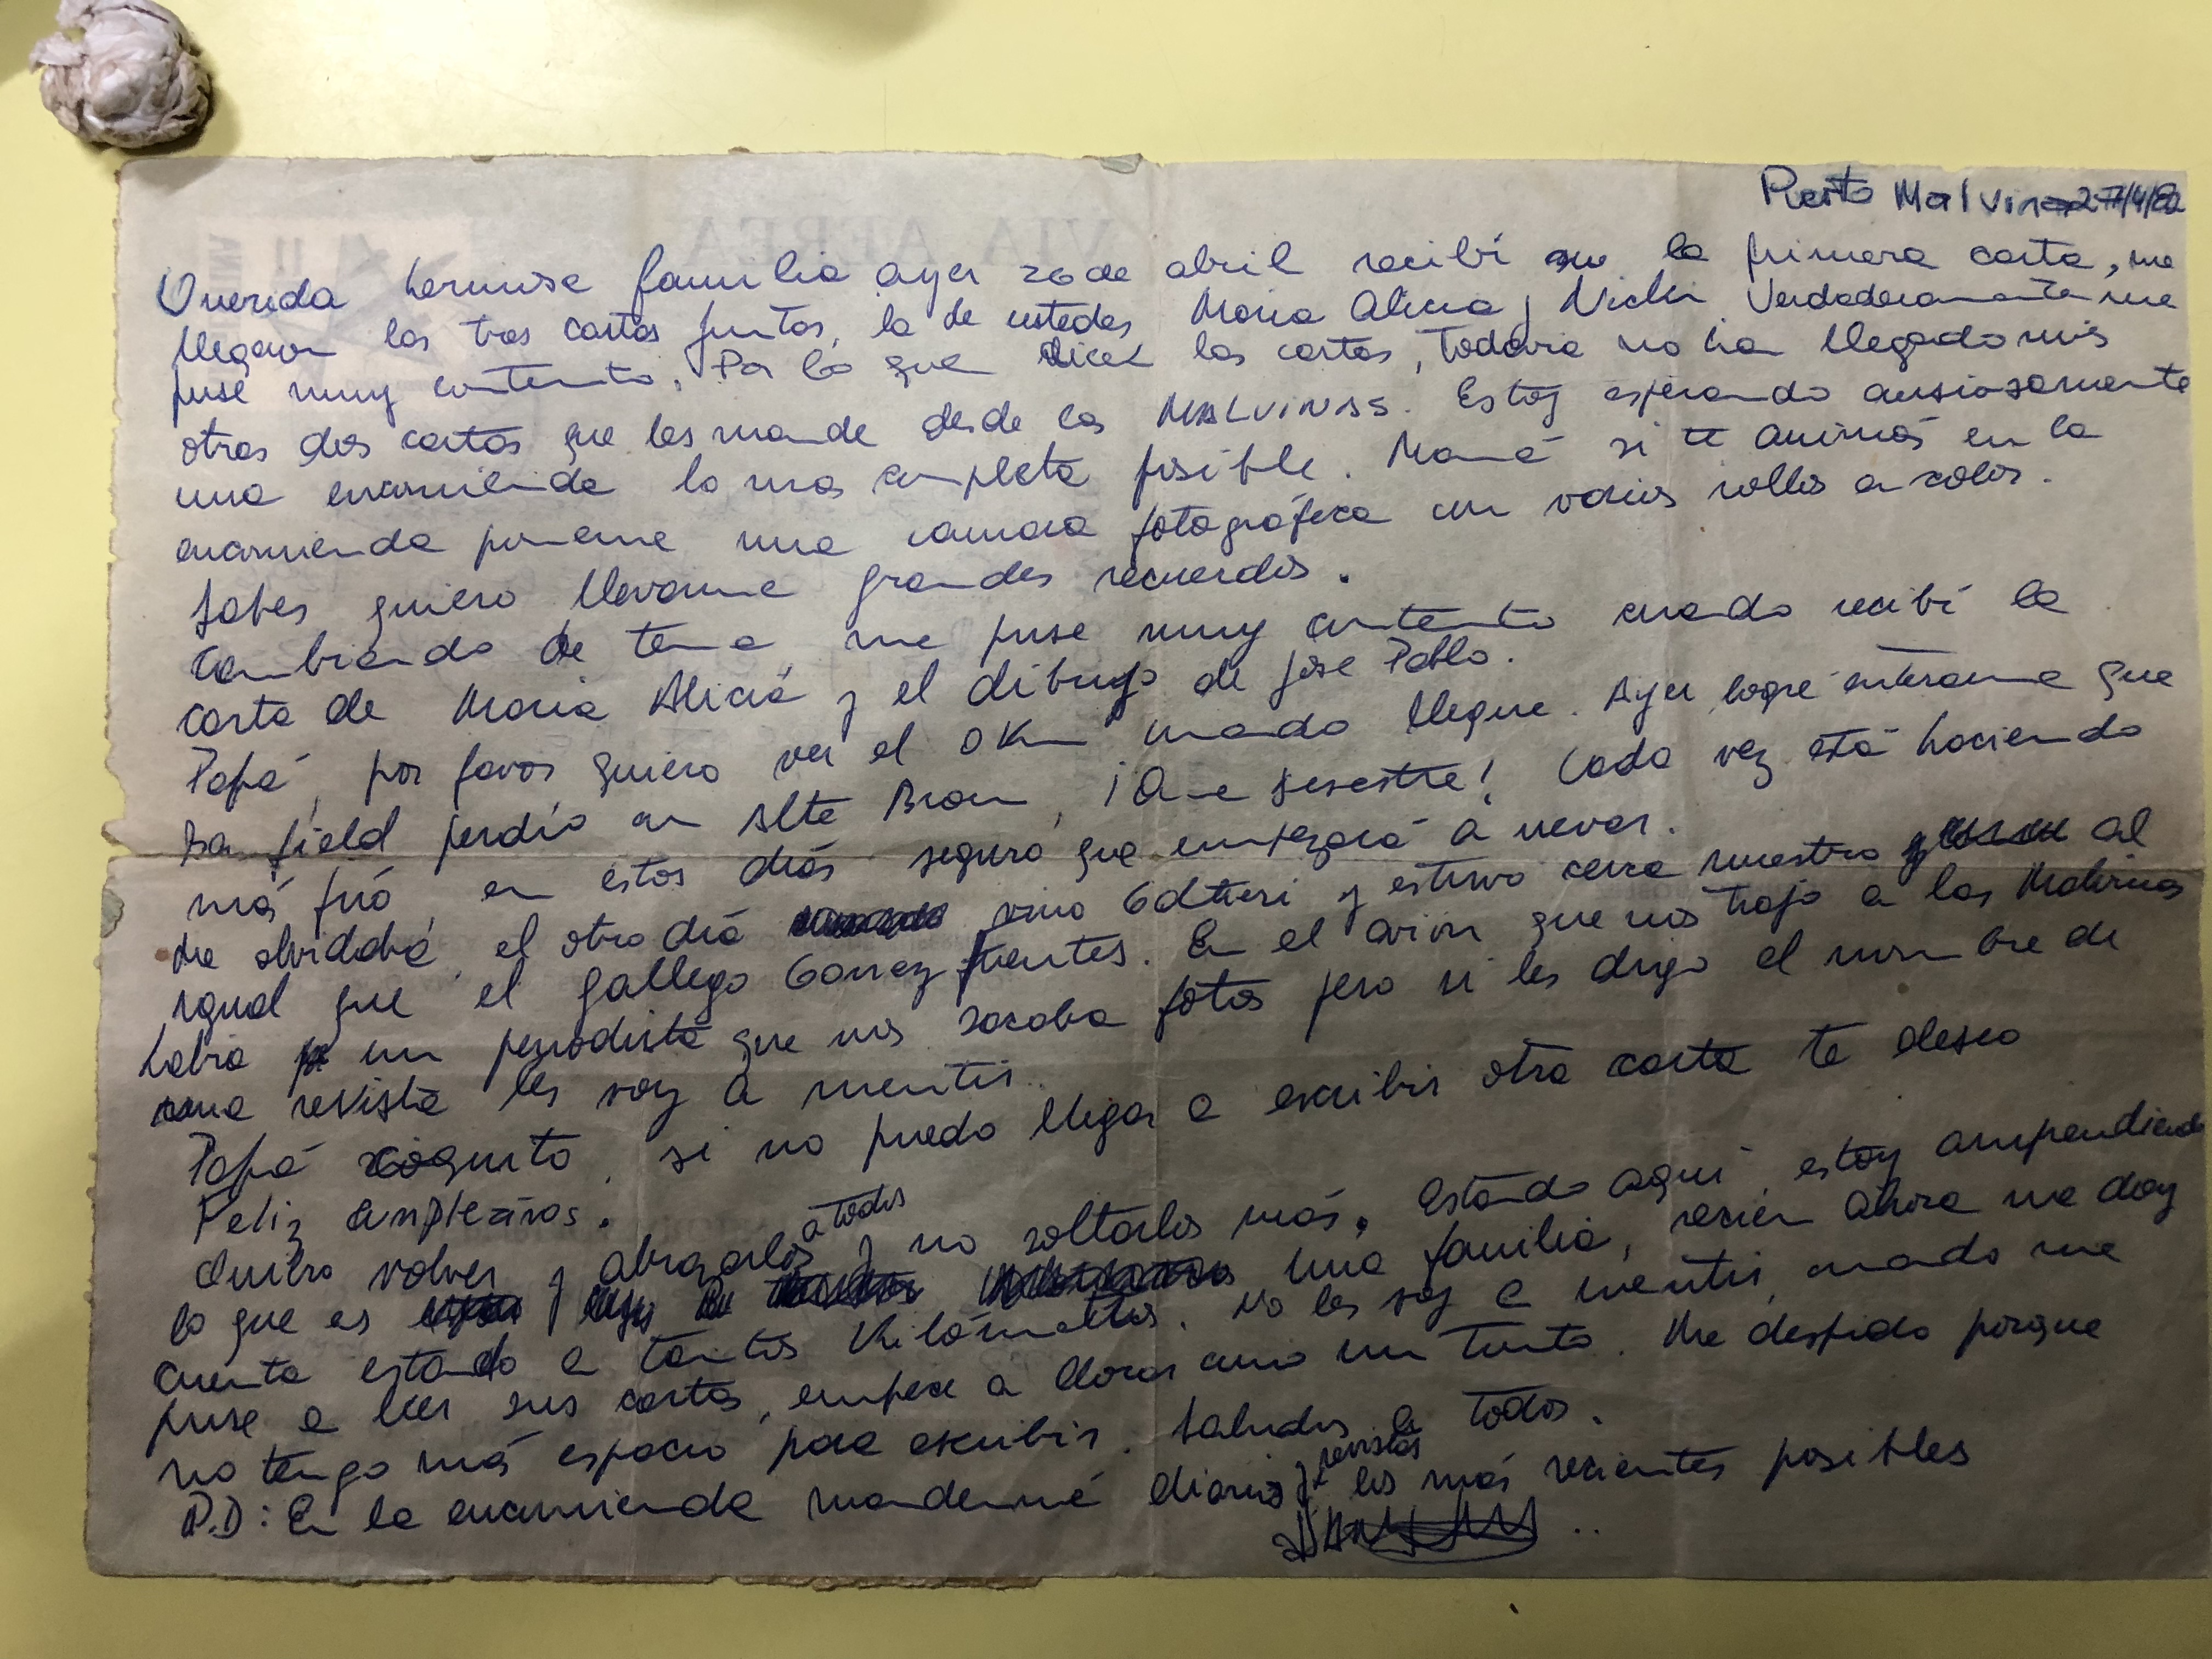 Puerto Malvinas 27/4/82
VIA AEREA
Querida hermosa familia ayer 26 de abril recibí la primera carta, me
llegaron las tres cartas juntas, la de ustedes Maria Alicia y Verdaderamente me
puse muy contento. Por lo que dicen las cartas, todavia no ha llegado mis
otras dos cartas que les mande desde las MALVINAS. Estoy esperando ansiosamente
una encomienda lo mas completa posible. Mamá si te animás en la
encomienda poneme una camara fotográfica con varios rollos a color.
Sabes quiero llevarme grandes recuerdos.
Cambiando de tema me puse muy contento cuando recibí la
carta de Maria Alicia y el dibujo de Jose Pablo.
Papá, por favor quiero ver el 0 Km cuando llegue. Ayer logré enterarme que
Banfield perdío con Alte Brown, ¡Que desastre! Cada vez está haciendo
más frió, en estos diás seguro que empezará a nevar.
Me olvidabá, el otro diá vino Galtieri y estuvo cerca nuestro al
igual que el gallego Gomez Fuentes. En el avion que nos trajo a las Malvinas
habia un periodista que nos sacaba fotos pero si les digo el nombre de
una revista les voy a mentir.
Papá si no puedo llegar a escribir otra carta te deseo
Feliz cumpleaños.
Quiero volver y abrazarlos a todos y no soltarlos más. Estando aquí, estoy comprendiendo
lo que es una familia, recien ahora me doy
cuenta estando a tantos Kilómetros. No les voy a mentir, cuando me
puse a leer sus cartas, empece a llorar como un tonto. Me despido porque
no tengo más espacio para escribir. Saludos a todos.
P.D: En la encomienda mandenmé diarios y revistas los más recientes posibles